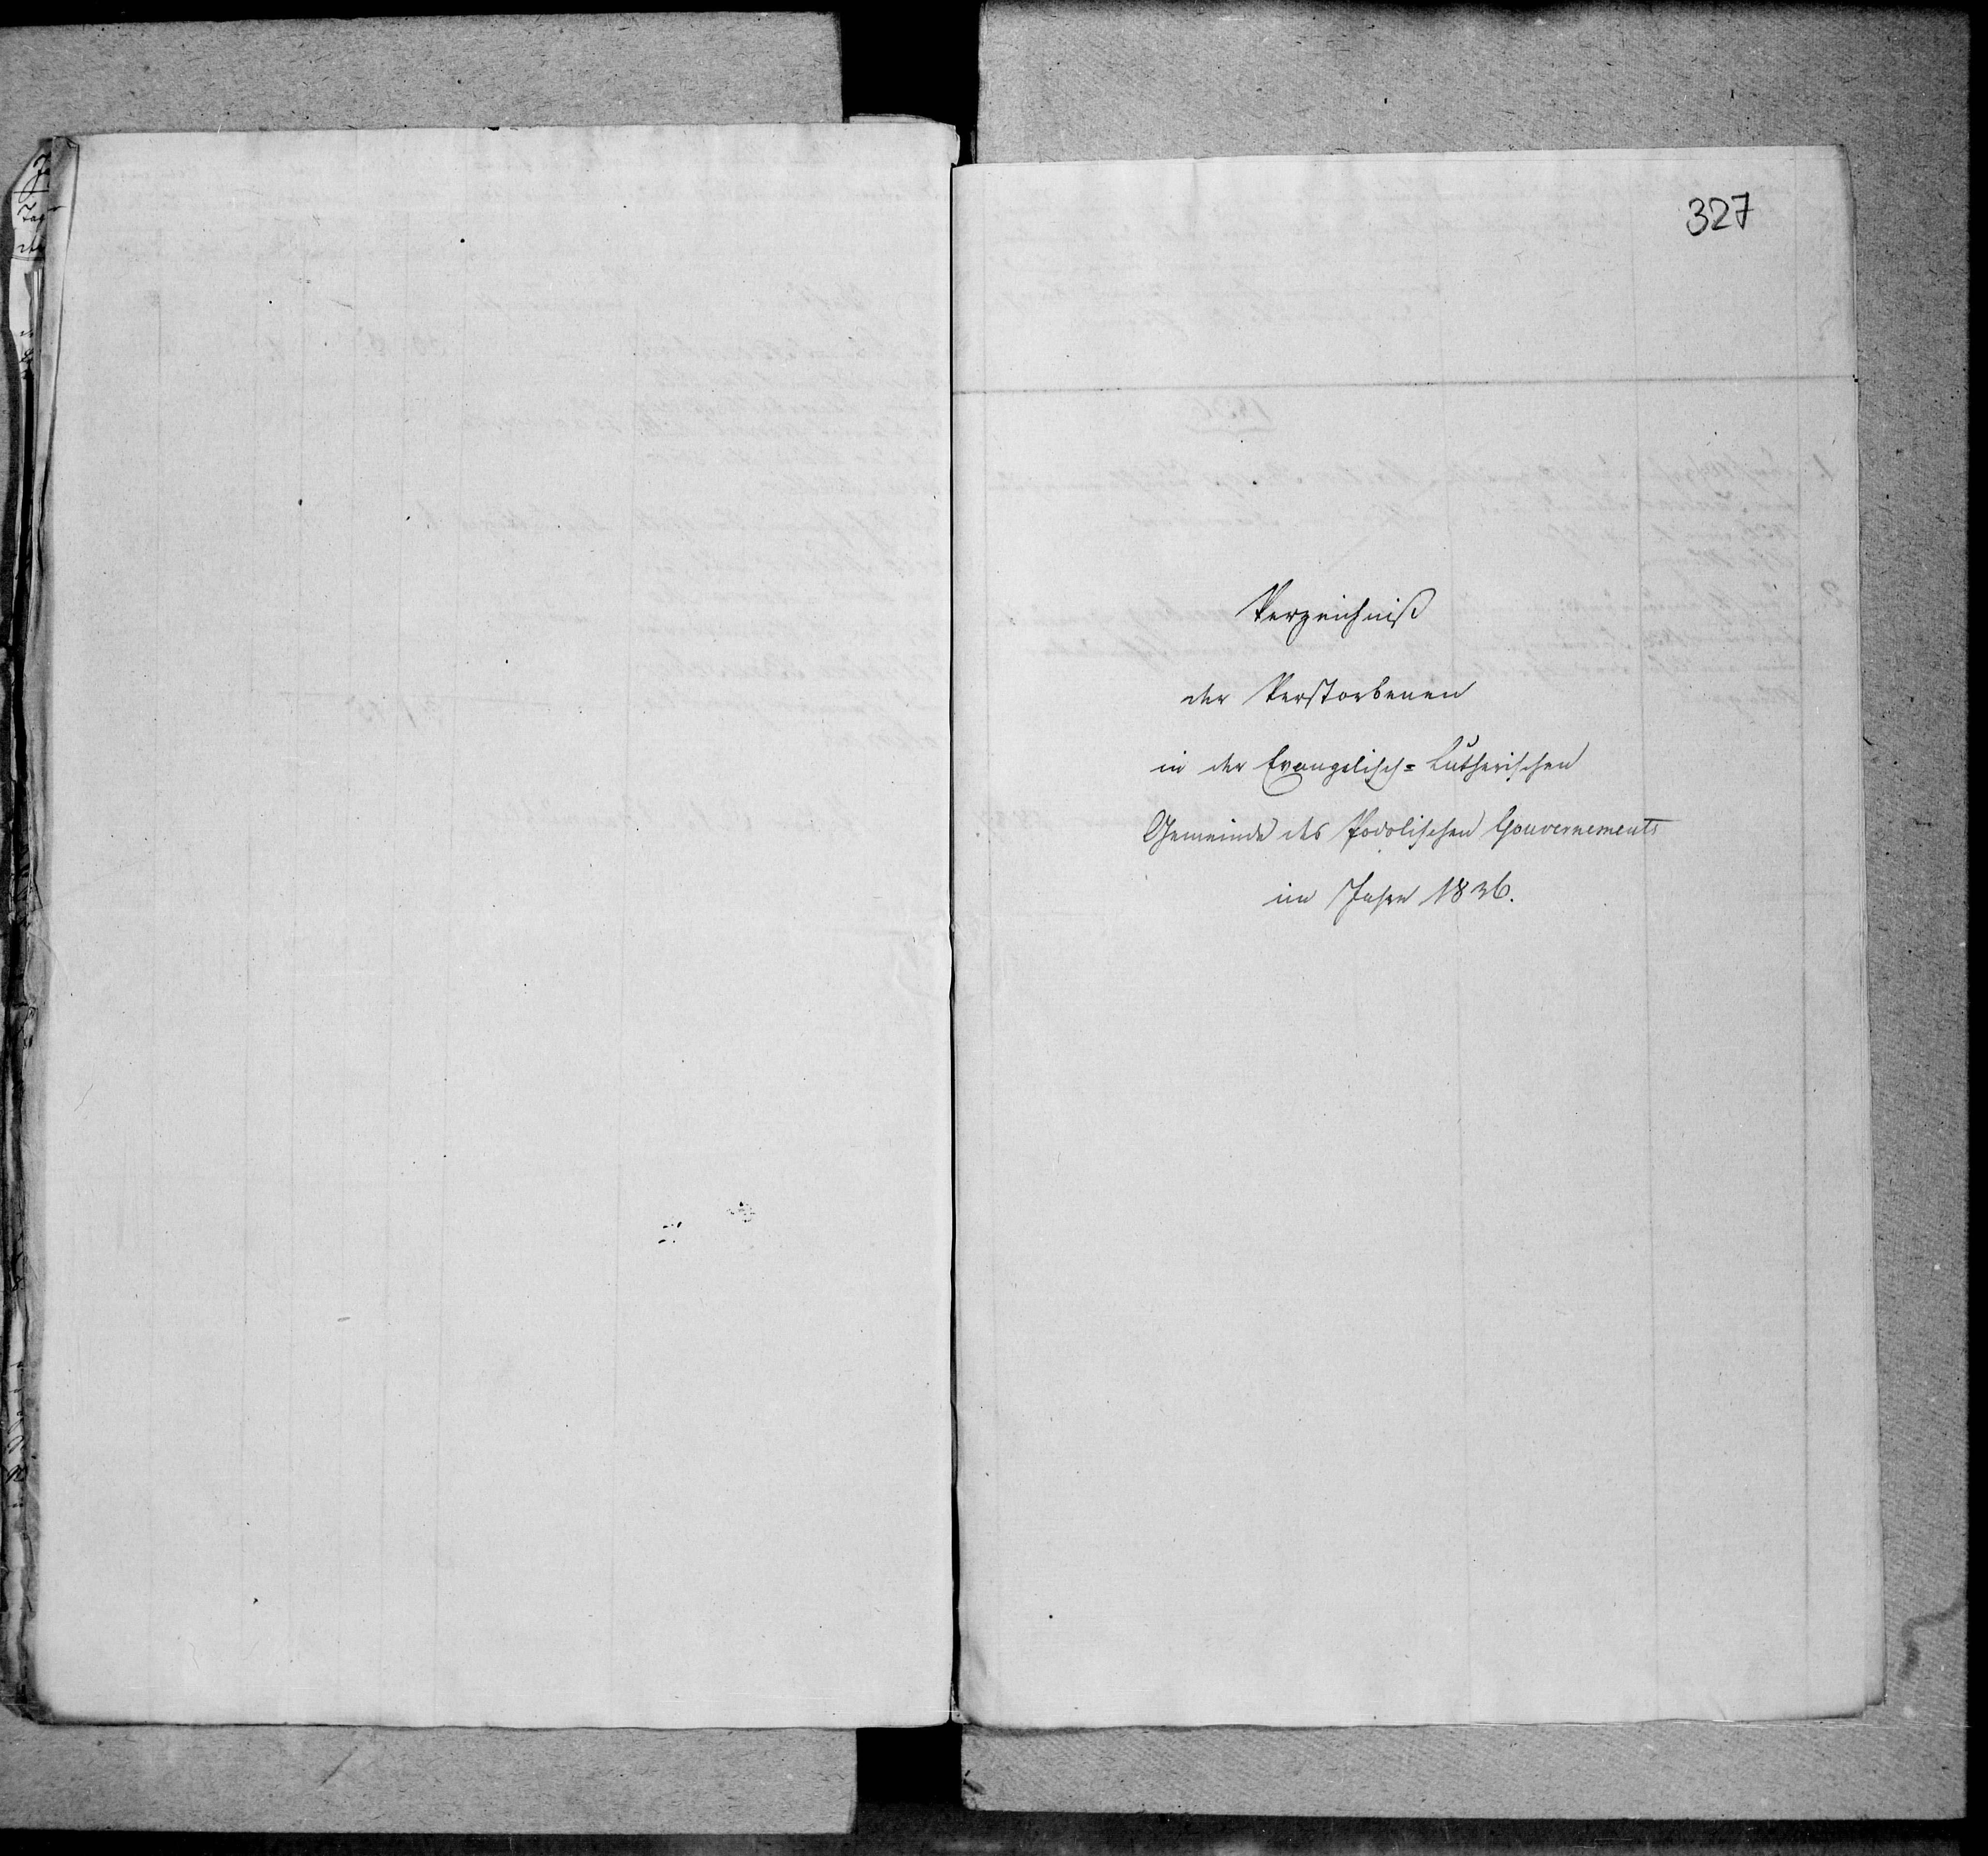 327
Verzeichniß
der Verstorbenen
in der Evangelisch=Lutherischen
Gemeinde des Podolischen Gouvernements
im Jahre 1836.